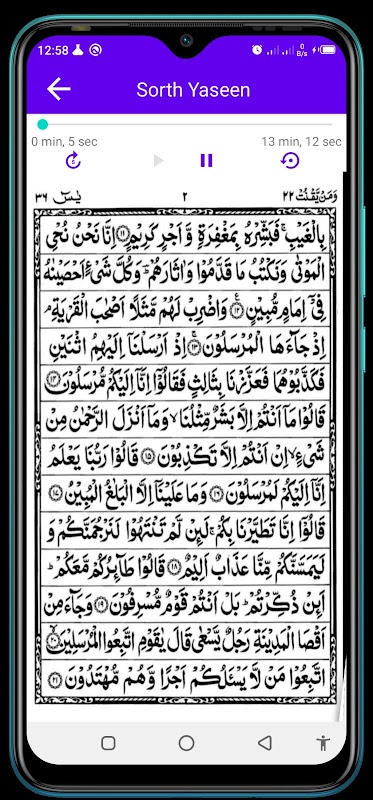 12:58
0 B/s
Sorth Yaseen
0 min, 5 sec
13 min, 12 sec
وَمَنْ يَّقْنُتْ ٢٢
٢
يٰسٓ ٣٦
بِالْغَيْبِ ۚ فَبَشِّرْهُ بِمَغْفِرَةٍ وَّ اَجْرٍ كَرِيْمٍ ﴿۱۱﴾ اِنَّا نَحْنُ نُحْيِ
الْمَوْتٰى وَنَكْتُبُ مَا قَدَّمُوْا وَاٰثَارَهُمْ ؕ وَكُلَّ شَيْءٍ اَحْصَيْنٰهُ
فِيْۤ اِمَامٍ مُّبِيْنٍ ﴿۱۲﴾ وَاضْرِبْ لَهُمْ مَّثَلًا اَصْحٰبَ الْقَرْيَةِ ۘ
اِذْ جَآءَهَا الْمُرْسَلُوْنَ ﴿۱۳﴾ اِذْ اَرْسَلْنَاۤ اِلَيْهِمُ اثْنَيْنِ
فَكَذَّبُوْهُمَا فَعَزَّزْنَا بِثَالِثٍ فَقَالُوْۤا اِنَّاۤ اِلَيْكُمْ مُّرْسَلُوْنَ ﴿۱۴﴾
قَالُوْا مَاۤ اَنْتُمْ اِلَّا بَشَرٌ مِّثْلُنَا ۙ وَمَاۤ اَنْزَلَ الرَّحْمٰنُ مِنْ
شَيْءٍ ۙ اِنْ اَنْتُمْ اِلَّا تَكْذِبُوْنَ ﴿۱۵﴾ قَالُوْا رَبُّنَا يَعْلَمُ
اِنَّاۤ اِلَيْكُمْ لَمُرْسَلُوْنَ ﴿۱۶﴾ وَمَا عَلَيْنَاۤ اِلَّا الْبَلٰغُ الْمُبِيْنُ ﴿۱۷﴾
قَالُوْۤا اِنَّا تَطَيَّرْنَا بِكُمْ ۚ لَئِنْ لَّمْ تَنْتَهُوْا لَنَرْجُمَنَّكُمْ وَ
لَيَمَسَّنَّكُمْ مِّنَّا عَذَابٌ اَلِيْمٌ ﴿۱۸﴾ قَالُوْا طَآئِرُكُمْ مَّعَكُمْ ؕ
اَئِنْ ذُكِّرْتُمْ ؕ بَلْ اَنْتُمْ قَوْمٌ مُّسْرِفُوْنَ ﴿۱۹﴾ وَجَآءَ مِنْ
اَقْصَا الْمَدِيْنَةِ رَجُلٌ يَّسْعٰى قَالَ يٰقَوْمِ اتَّبِعُوا الْمُرْسَلِيْنَ ﴿۲۰﴾
اتَّبِعُوْا مَنْ لَّا يَسْـَٔلُكُمْ اَجْرًا وَّهُمْ مُّهْتَدُوْنَ ﴿۲۱﴾